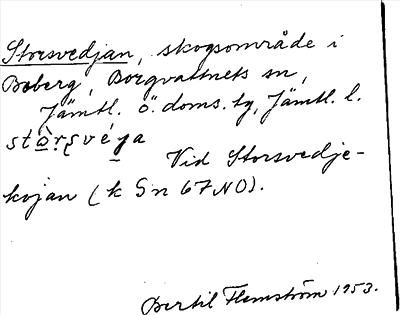 Storsvedjan, skogsområde i
Boberg, Borgvattnets sn,
Jämtl. ö. doms. tg, Jämtl. l.
Vid Storsvedje-
kojan (k Sn 67 NO).
Bertil Flemström 1953.